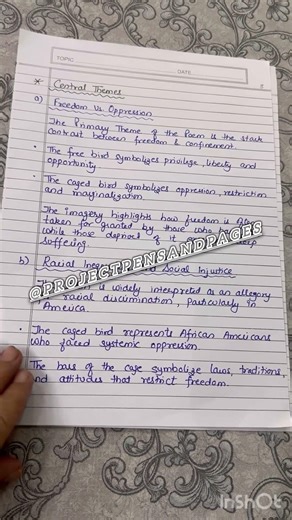 TOPIC
DATE
* Central Themes
a) Freedom Vs. Oppression
The Primary Theme of the Poem is the stark
contrast between freedom & confinement.
• The free bird symbolizes privilege, liberty and
opportunity
• The caged bird symbolizes oppression, restriction
and marginalization
The imagery highlights how freedom is often
taken for granted by those who
while those deprived of it
suffering.
@PROJECTPENSANDPAGES
b) Racial Social Injustice
is widely interpreted as an allegory
racial discrimination, particularly in
America.
• The caged bird represents African Americans
who faced systemic oppression.
The bars of the cage symbolize laws, traditions,
and attitudes that restrict freedom.
InShOt